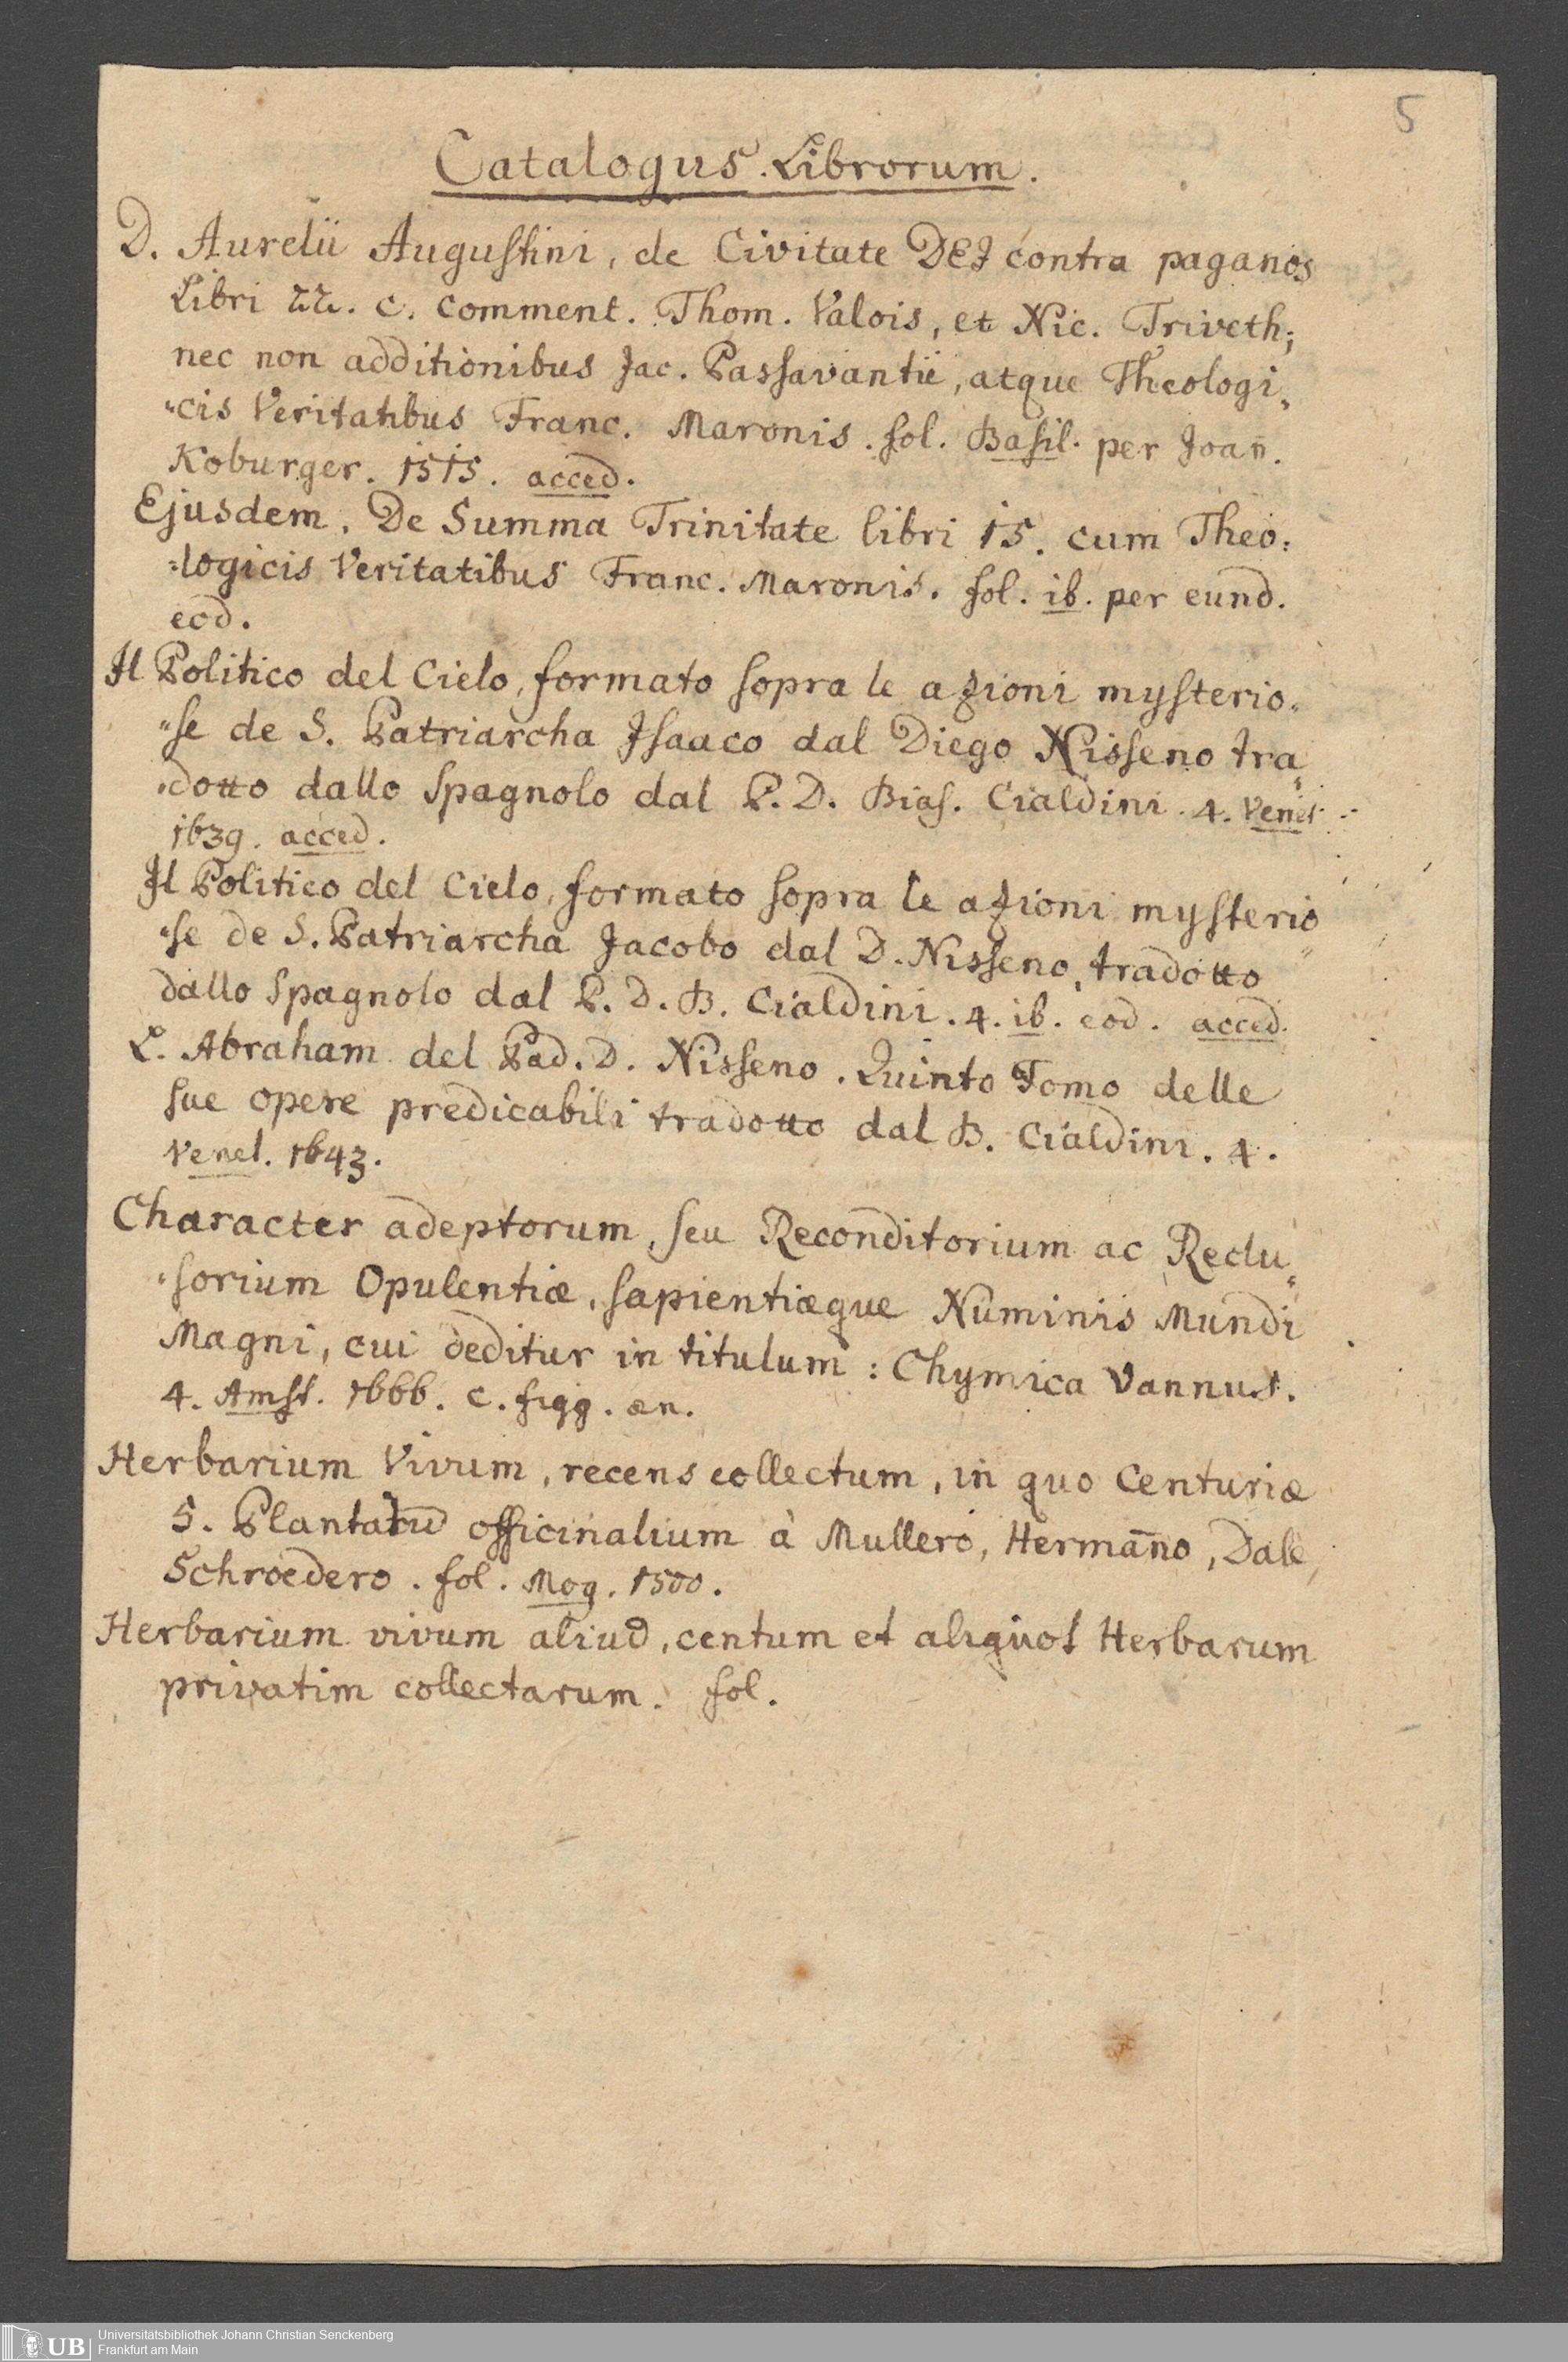 5
Catalogus Librorum.
D. Aurelii Augustini, de Civitate DEJ contra paganos
Libri 22. c. comment. Thom. Valois, et Nic. Triveth;
nec non additionibus Jac. Passavantii, atque Theologi„
„cis Veritatibus Franc. Maronis. fol. Basil. per Joan̄.
Koburger. 1515. acced.
Ejusdem. De Summa Trinitate libri 15. cum Theo:
:logicis Veritatibus Franc. Maronis. fol. ib. per eund.
eod.
Il Politico del Cielo, formato sopra le azioni mysterio„
„se de S. Patriarcha Isaaco dal Diego Nisseno tra„
„dotto dallo Spagnolo dal P. D. Bias. Cialdini. 4. Venet
1639. acced.
Il Politico del Cielo, formato sopra le azioni mysterio„
„se de S. Patriarcha Jacobo dal D. Nisseno, tradotto
dallo Spagnolo dal P. D. B. Cialdini. 4. ib. eod. acced.
L. Abraham del Pad. D. Nisseno. Quinto Tomo delle
sue opere predicabili tradotto dal B. Cialdini. 4.
Venet. 1643.
Character adeptorum, seu Reconditorium ac Reclu„
„sorium Opulentiæ, sapientiæque Numinis Mundi
Magni, cui deditur in titulum: Chymica Vannus.
4. Amst. 1666. c. figg. æn.
Herbarium Vivum, recens collectum, in quo Centuriæ
5. Plantarū officinalium à Mullero, Herman̄o, Dale,
Schroedero. fol. Mog. 1500.
Herbarium vivum aliud, centum et aliquot Herbarum
privatim collectarum. fol.
UB
Universitätsbibliothek Johann Christian Senckenberg
Frankfurt am Main